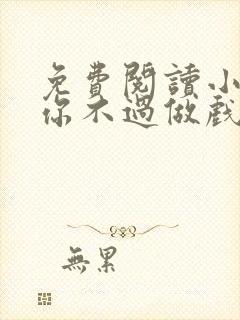 免費閱讀小
你不過做戲
無累